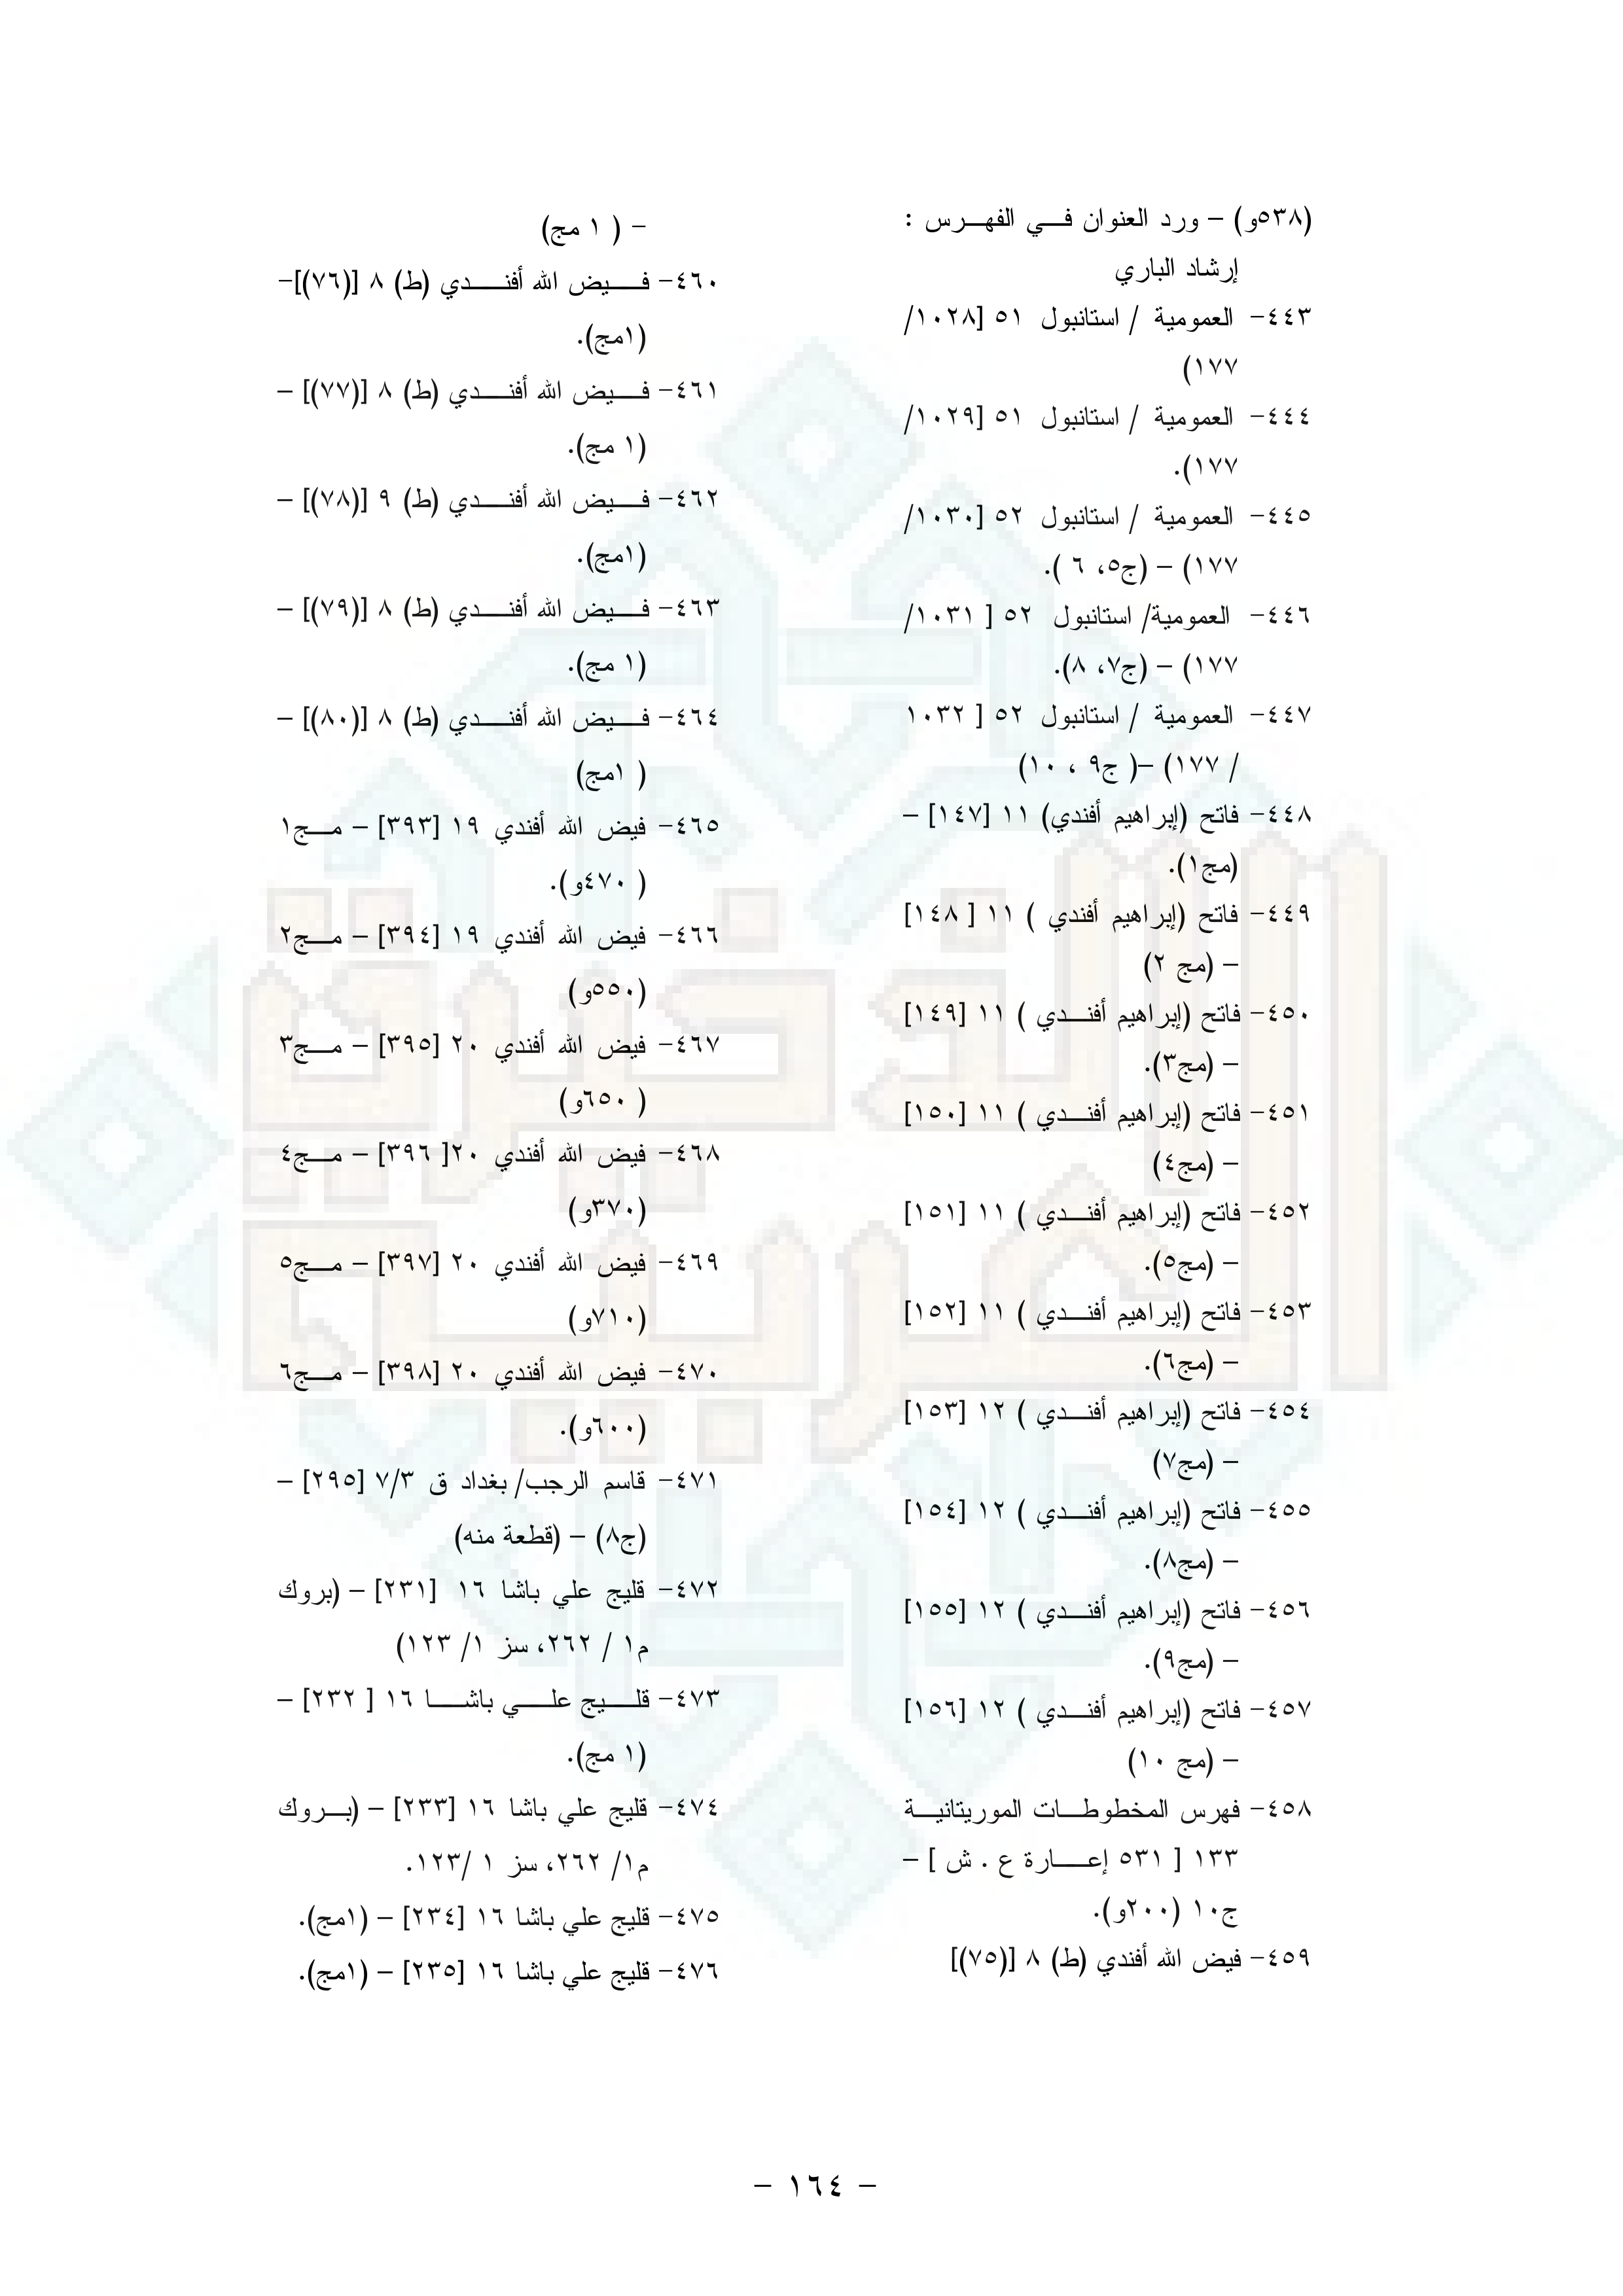 (٥٣٨و) – ورد العنوان فـي الفهـرس :
إرشاد الباري
٤٤٣- العمومية / استانبول ٥١ [١٠٢٨/
١٧٧)
٤٤٤- العمومية / استانبول ٥١ [١٠٢٩/
١٧٧).
٤٤٥- العمومية / استانبول ٥٢ [١٠٣٠/
١٧٧) – (ج٥، ٦ ).
٤٤٦- العمومية/ استانبول ٥٢ [ ١٠٣١/
١٧٧) – (ج٧، ٨).
٤٤٧- العمومية / استانبول ٥٢ [ ١٠٣٢
/ ١٧٧) –( ج٩ ، ١٠)
٤٤٨- فاتح (إبراهيم أفندي) ١١ [١٤٧] –
(مج١).
٤٤٩- فاتح (إبراهيم أفندي ) ١١ [ ١٤٨]
– (مج ٢)
٤٥٠- فاتح (إبراهيم أفنـدي ) ١١ [١٤٩]
– (مج٣).
٤٥١- فاتح (إبراهيم أفنـدي ) ١١ [١٥٠]
– (مج٤)
٤٥٢- فاتح (إبراهيم أفنـدي ) ١١ [١٥١]
– (مج٥).
٤٥٣- فاتح (إبراهيم أفنـدي ) ١١ [١٥٢]
– (مج٦).
٤٥٤- فاتح (إبراهيم أفنـدي ) ١٢ [١٥٣]
– (مج٧)
٤٥٥- فاتح (إبراهيم أفنـدي ) ١٢ [١٥٤]
– (مج٨).
٤٥٦- فاتح (إبراهيم أفنـدي ) ١٢ [١٥٥]
– (مج٩).
٤٥٧- فاتح (إبراهيم أفنـدي ) ١٢ [١٥٦]
– (مج ١٠)
٤٥٨- فهرس المخطوطـات الموريتانيـة
١٣٣ [ ٥٣١ إعـارة ع . ش ] –
ج١٠ (٢٠٠و).
٤٥٩- فيض الله أفندي (ط) ٨ [(٧٥)]
– ( ١ مج)
٤٦٠- فـيض الله أفنـدي (ط) ٨ [(٧٦)]-
(١مج).
٤٦١- فـيض الله أفنـدي (ط) ٨ [(٧٧)] –
(١ مج).
٤٦٢- فـيض الله أفنـدي (ط) ٩ [(٧٨)] –
(١مج).
٤٦٣- فـيض الله أفنـدي (ط) ٨ [(٧٩)] –
(١ مج).
٤٦٤- فـيض الله أفنـدي (ط) ٨ [(٨٠)] –
( ١مج)
٤٦٥- فيض الله أفندي ١٩ [٣٩٣] – مـج١
( ٤٧٠و).
٤٦٦- فيض الله أفندي ١٩ [٣٩٤] – مـج٢
(٥٥٠و)
٤٦٧- فيض الله أفندي ٢٠ [٣٩٥] – مـج٣
( ٦٥٠و)
٤٦٨- فيض الله أفندي ٢٠[ ٣٩٦] – مـج٤
(٣٧٠و)
٤٦٩- فيض الله أفندي ٢٠ [٣٩٧] – مـج٥
(٧١٠و)
٤٧٠- فيض الله أفندي ٢٠ [٣٩٨] – مـج٦
(٦٠٠و).
٤٧١- قاسم الرجب/ بغداد ق ٧/٣ [٢٩٥] –
(ج٨) – (قطعة منه)
٤٧٢- قليج علي باشا ١٦ [٢٣١] – (بروك
م١ / ٢٦٢، سز ١/ ١٢٣)
٤٧٣- قلـيج علـي باشـا ١٦ [ ٢٣٢] –
(١ مج).
٤٧٤- قليج علي باشا ١٦ [٢٣٣] – (بـروك
م١/ ٢٦٢، سز ١ /١٢٣.
٤٧٥- قليج علي باشا ١٦ [٢٣٤] – (١مج).
٤٧٦- قليج علي باشا ١٦ [٢٣٥] – (١مج).
– ١٦٤ –
الذخيرة
العربية